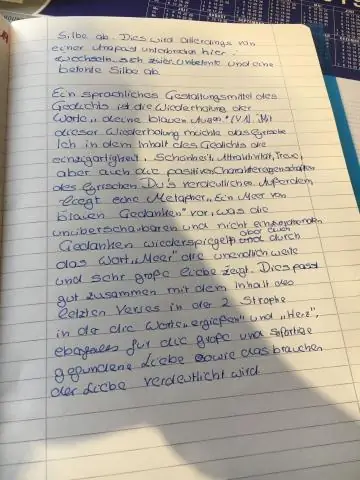 Silbe ab. Dies wird allerdings von
einer unterbrochen hier
wechseln sich zwei unbetonte und eine
betonte Silbe ab.
Ein sprachliches Gestaltungsmittel des
Gedichts ist die Wiederholung der
Worte „deine blauen Augen" (V1). Mit
dieser Wiederholung möchte das lyrische
Ich in dem Inhalt des Gedichts die
einzigartigkeit, Schönheit, Attraktivität, Treue,
aber auch die positiven Charaktereigenschaften
des lyrischen Du's verdeutlichen. Außerdem
liegt eine Metapher „Ein Meer von
blauen Gedanken" vor, was die
unüberschaubaren und nicht
Gedanken wiederspiegelt aber auch durch
das Wort „Meer" die unendlich weite
und sehr große Liebe zeigt. Dies passt
gut zusammen mit dem Inhalt des
letzten Verses in der 2 Strophe
in der die Worte „ergießen" und „Herz",
für die große und
gefundene Liebe sowie das brauchen
der Liebe verdeutlicht wird